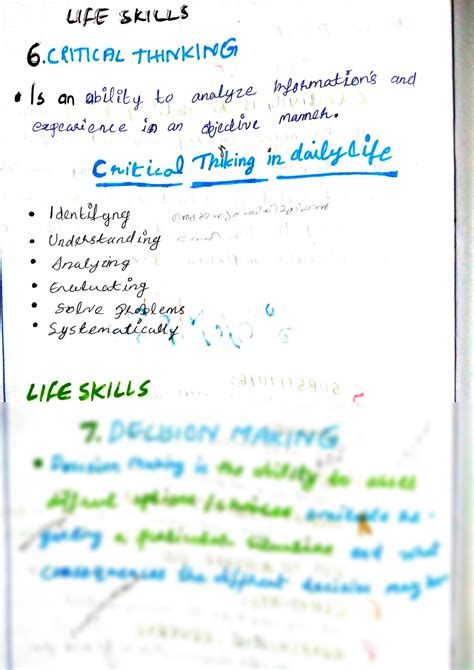 LIFE SKILLS
6. CRITICAL THINKING
• Is an ability to analyze Informations and
expearience in an objective manner.
Critical Thiking in dailylife
• Identifyng
• Understanding
• Analyzing
• Evaluating
• Solve problems
• Systematically
LIFE SKILLS
7. DECISION MAKING
• Decision making is the ability to assess
options / choices available re-
garding a particular situation and what
consequences the different decision may be